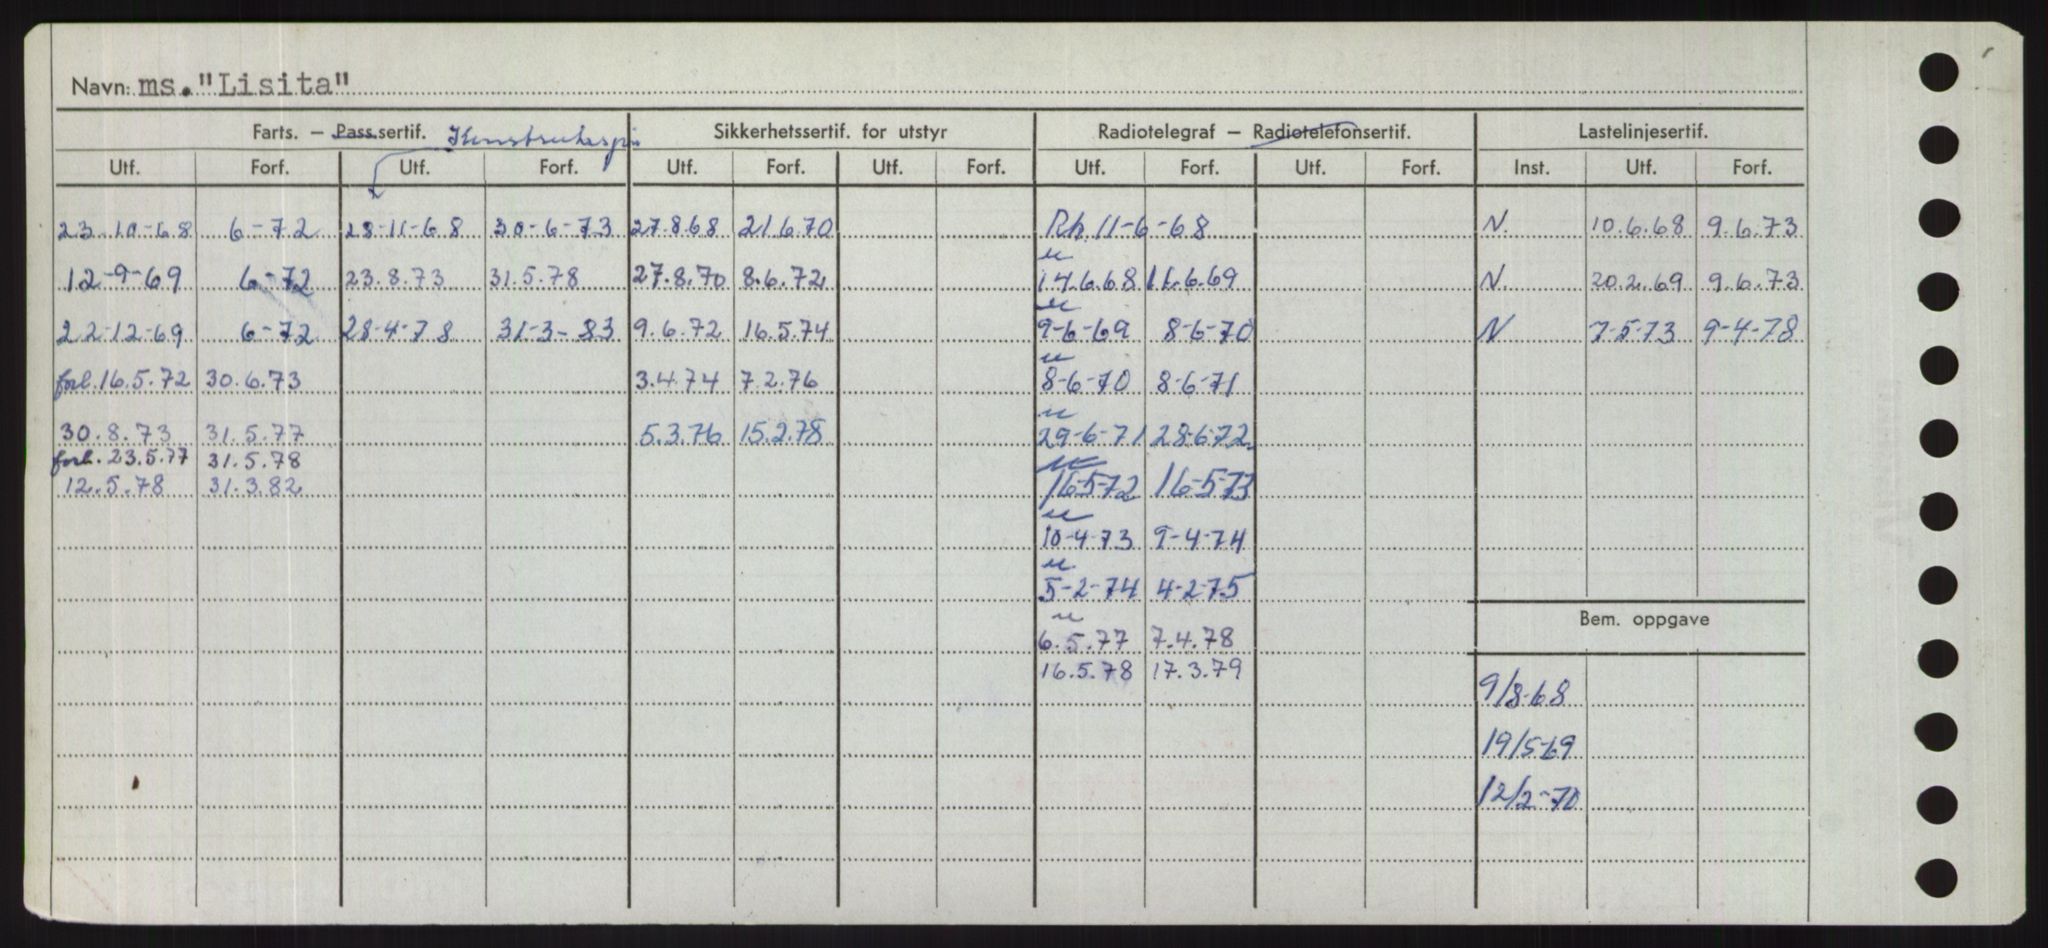 Navn: ms. "Lisita"
Farts. – Pass.sertif. Sikkerhetssertif. for utstyr Radiotelegraf – Radiotelefonsertif. Lastelinjesertif.
Utf. Forf. Utf. Forf. Utf. Forf. Utf. Forf. Utf. Forf. Utf. Forf. Inst. Utf. Forf.
23-10-68 6-72 28-11-68 30-6-73 27.8.68 21.6.70 Rh. 11-6-68 N. 10.6.68 9.6.73
12-9-69 6-72 23.8.73 31.5.78 27.8.70 8.6.72 14.6.68 11.6.69 N. 20.2.69 9.6.73
22-12-69 6-72 28-4-78 31-3-83 9.6.72 16.5.74 9-6-69 8-6-70 N 7-5-73 9-4-78
forl. 16.5.72 30.6.73 3.4.74 7.2.76 8-6-70 8-6-71
30.8.73 31.5.77 5.3.76 15.2.78 29-6-71 28-6-72
forl. 23.5.77 31.5.78
12.5.78 31.3.82 16-5-72 16-5-73
10-4-73 9-4-74
5-2-74 4-2-75
Bem. oppgave
6.5.77 7.4.78
16.5.78 17.3.79
9/8-68
19/5-69
12/2-70